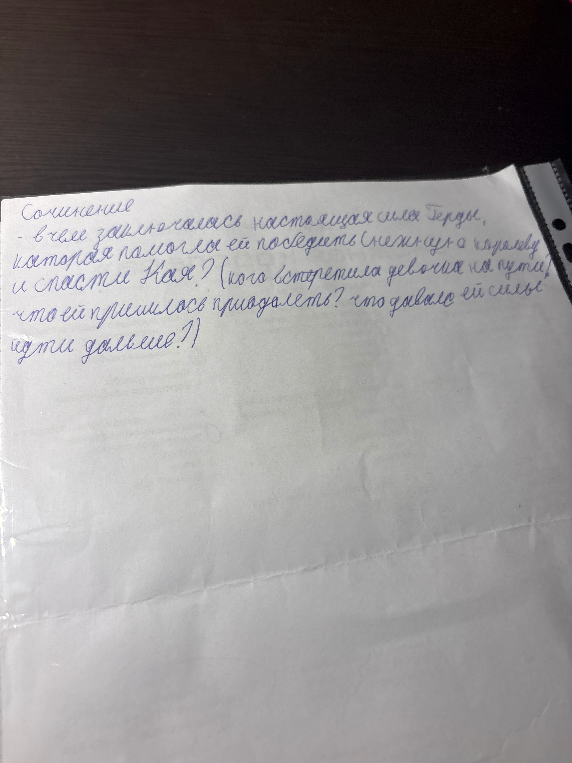 Сочинение
- в чем заключалась настоящая сила Герды,
каторая памогла ей победить Снежную каралеву
и спасти Кая? (кого встретила девочка на пути,
что ей пришлось приадалеть? что давало ей силы
идти дальше?)